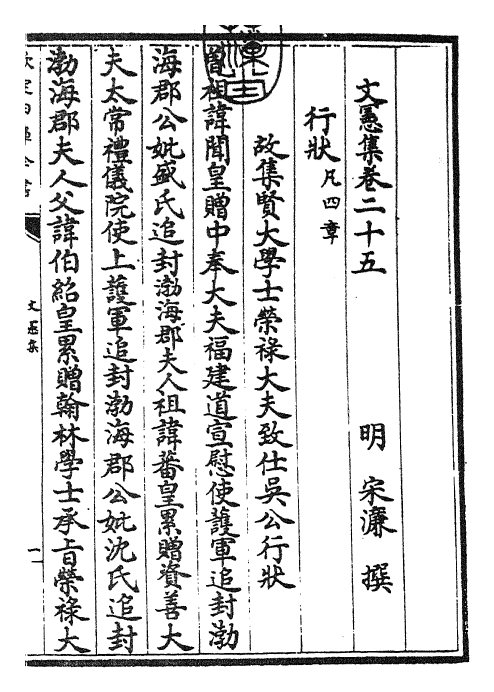 文憲集卷二十五
明 宋濂 撰
行狀凡四章
故集賢大學士榮祿大夫致仕吳公行狀
曾祖諱聞皇贈中奉大夫福建道宣慰使護軍追封渤
海郡公妣盛氏追封渤海郡夫人祖諱蕃皇累贈資善大
夫太常禮儀院使上護軍追封渤海郡公妣沈氏追封
渤海郡夫人父諱伯紹皇累贈翰林學士承旨榮祿大
欽定四庫全書
文憲集